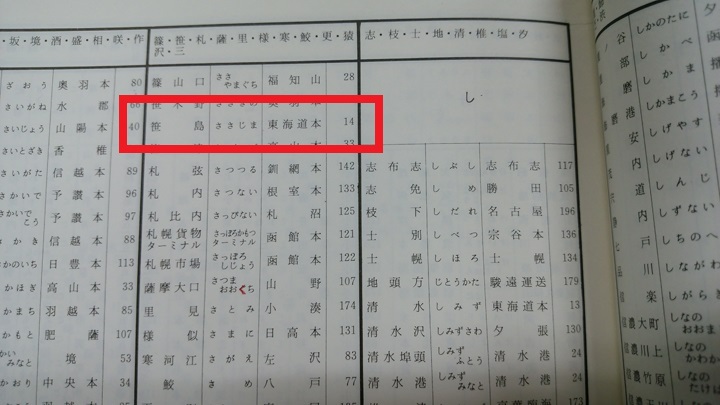 坂・境・酒・盛・相・咲・作
篠・笹・札・薩・里・様・寒・鮫・更・猿
沢・三
志・枝・士・地・清・椎・塩・汐
ざおう 奥羽本 80
さいがね 水郡 66
さいじょう 山陽本 40
さいとざき 香椎
さいがた 信越本 89
さかいで 予讃本 96
さかいでこう 予讃本 97
さかき 信越本 88
さかのいち 日豊本 113
さかほぎ 高山本 33
さかまち 羽越本 85
さかもと 肥薩 107
さかいみなと 境 53
さかおり 中央本 34
篠山口 ささやまぐち 福知山 28
笹木野 ささきの 奥羽本
笹島 ささじま 東海道本 14
高山本 33
札弦 さつつる 釧網本 142
札内 さつない 根室本 133
札比内 さっぴない 札沼 125
札幌貨物ターミナル さっぽろかもつターミナル 函館本 121
札幌市場 さっぽろしじょう 函館本 122
薩摩大口 さつまおおくち 山野 107
里見 さとみ 小湊 174
様似 さまに 日高本 131
寒河江 さがえ 左沢 83
鮫 さめ 八戸 77
し
志布志 しぶし 志布志 117
志免 しめ 勝田 105
枝下 しだれ 名古屋 196
士別 しべつ 宗谷本 136
士幌 しほろ 士幌 134
地頭方 じとうかた 駿遠運送 179
清水 しみず 東海道本 13
清水沢 しみずさわ 夕張 130
清水埠頭 しみずふとう 清水港 24
清水港 しみずみなと 清水港 24
173
谷 しかのたに
部 しかべ
磨 しかま
磨港 しかまこう
安 しげやす
内 しげない
道 しんじ
内 しずない
戸 しちのへ
川 しながわ
楽 しがらき
濃大町 しなのおおまち
濃川上
濃竹原